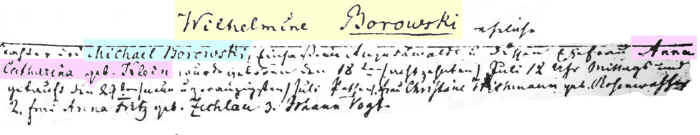 Wilhelmine Borowski eheliche
Tochter des Michael Borowski, Einsaßen Augustwalde u dessen Ehefrau Anna
Catharina geb. Klein wurde geboren den 18ten (achtzehnten) Juli 12 Uhr Mittags und
getauft den 27ten (sieben u zwanzigsten) Juli Pathen, Frau Christine geb. Rosenwasser
2. frau Anna Fritz geb. Zechlau 3. Johann Vogt.